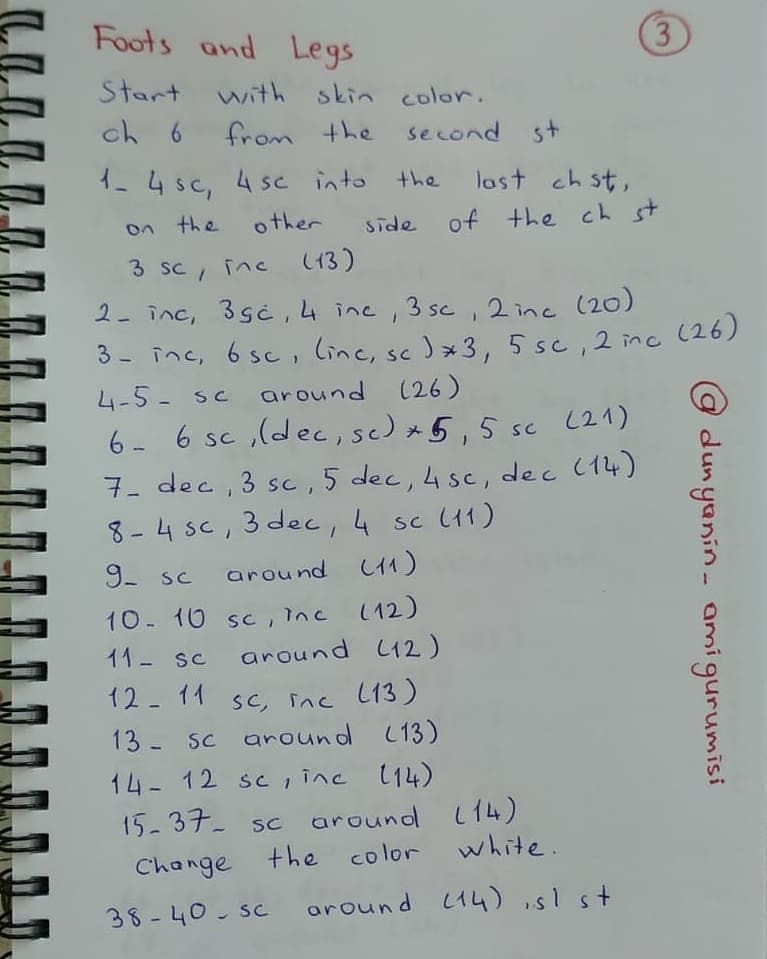 Foots and Legs
3
Start with skin color.
ch 6 from the second st
1- 4 sc, 4 sc into the last ch st,
on the other side of the ch st
3 sc, inc (13)
2- inc, 3 sc, 4 inc, 3 sc, 2 inc (20)
3- inc, 6 sc, (inc, sc)*3, 5 sc, 2 inc (26)
4-5- sc around (26)
6- 6 sc, (dec, sc)*5, 5 sc (21)
7- dec, 3 sc, 5 dec, 4 sc, dec (14)
8- 4 sc, 3 dec, 4 sc (11)
9- sc around (11)
10- 10 sc, inc (12)
11- sc around (12)
12- 11 sc, inc (13)
13- sc around (13)
14- 12 sc, inc (14)
15-37- sc around (14)
Change the color white.
38-40- sc around (14), sl st
@dunyanin_amigurumisi